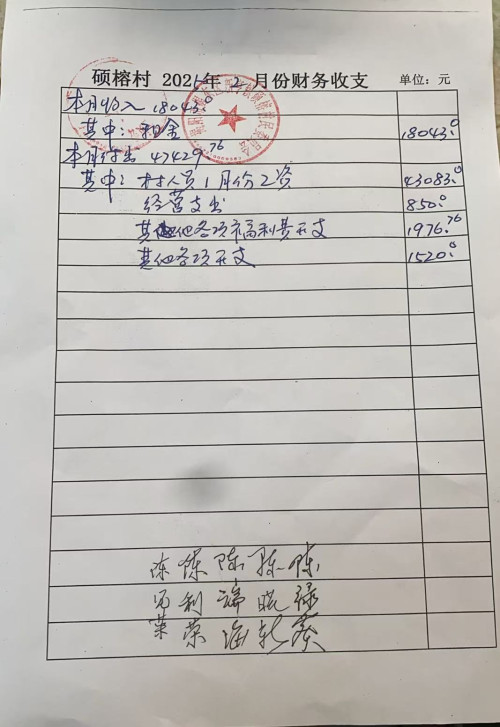 硕榕村 2025年 2 月份财务收支 单位：元
本月收入 18043.0
其中：租金 18043.0
本月付出 47429.76
其中：村人员1月份工资 43083.0
经营支出 850.0
其他各项福利费开支 1976.76
其他各项开支 1520.0
陈 陈 陈 陈 陈
利 瑞 晓 绿
荣 海